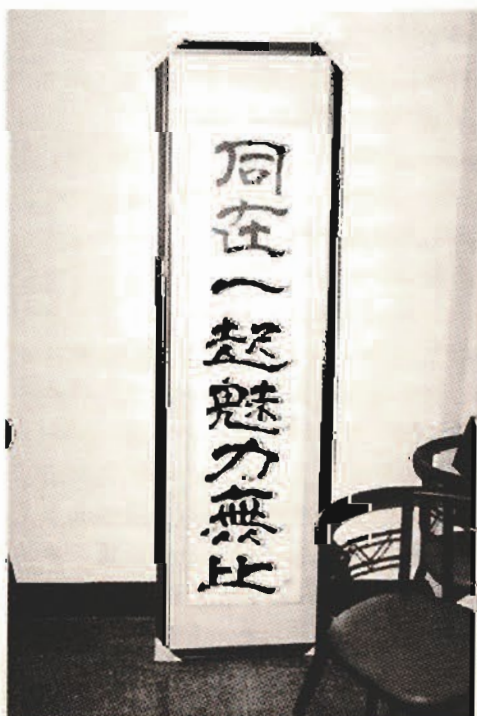 同在一起魅力無比